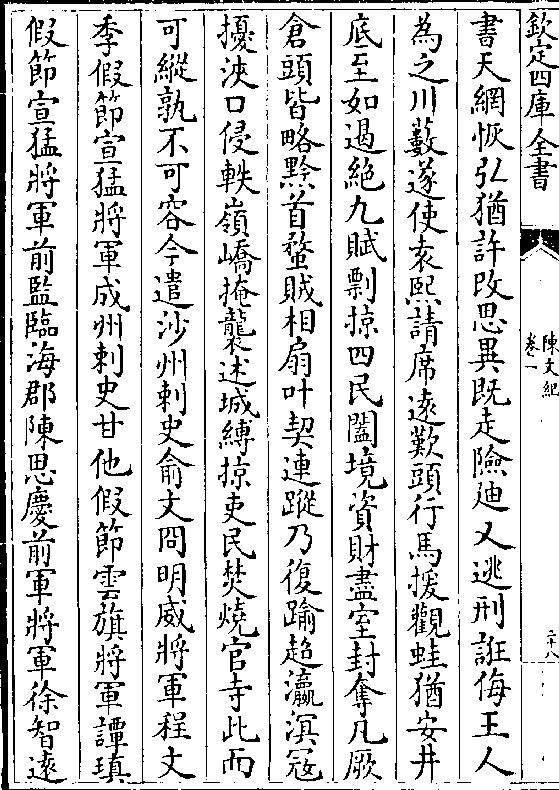 欽定四庫全書
陳文紀
卷一
二十八
書天網恢弘猶許改思異既走險迪又逃刑誑侮王人
為之川藪遂使袁熙請席遠歎頭行馬援觀蛙猶安井
底至如遏絕九賦剽掠四民闔境資財盡室封奪凡厥
倉頭皆略黔首蝥賊相扇叶契連蹤乃復踰超瀛溟寇
擾浹口侵軼嶺嶠掩襲述城縛掠吏民焚燒官寺此而
可縱孰不可容今遣沙州刺史俞文冏明威將軍程文
季假節宣猛將軍成州刺史甘他假節雲旗將軍譚瑱
假節宣猛將軍前監臨海郡陳思慶前軍將軍徐智遠